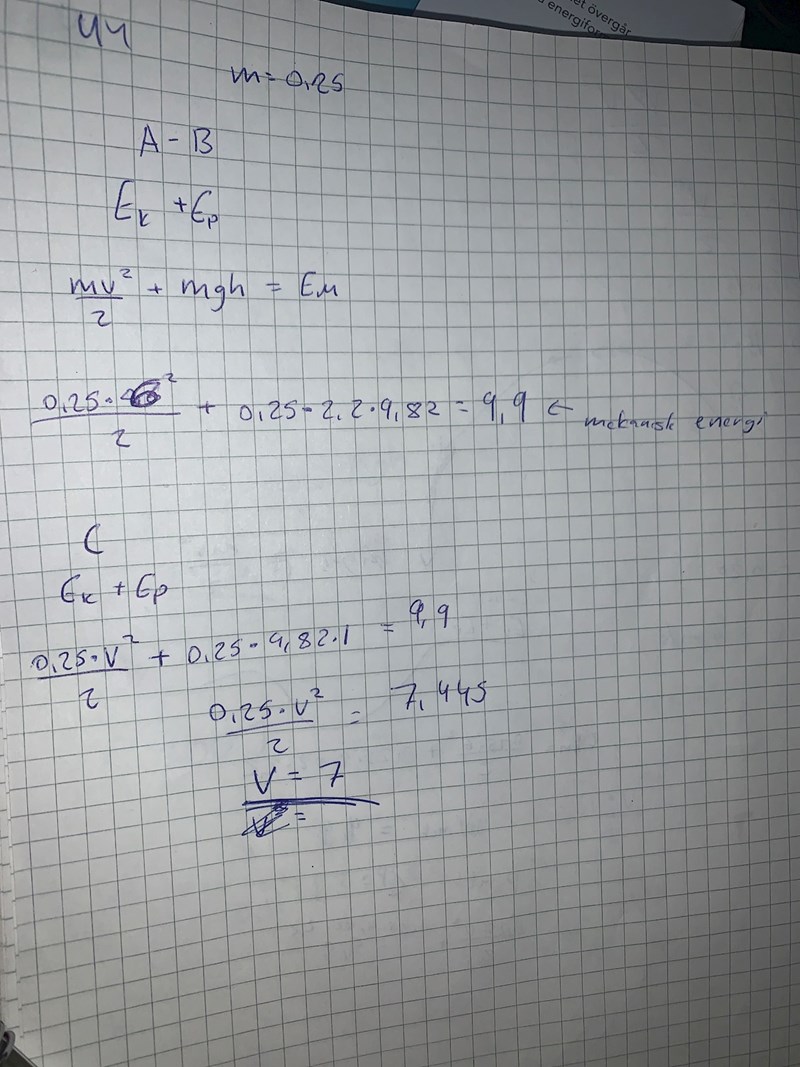 et övergår
energifor
44
m = 0,25
A - B
Ek + Ep
mv²/2 + mgh = EM
0,25 · ²/2 + 0,25 · 2,2 · 9,82 = 9,9 ← mekanisk energi
C
Ek + Ep
0,25 · V²/2 + 0,25 · 9,82 · 1 = 9,9
0,25 · V²/2 = 7,445
V = 7
=